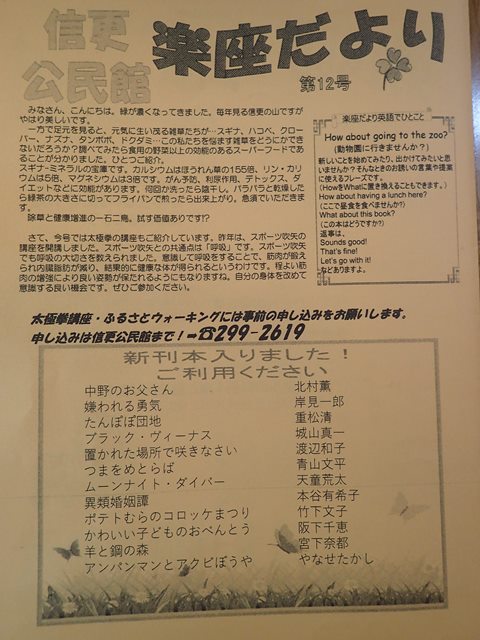 信更
公民館
楽座だより
第12号
みなさん、こんにちは。緑が濃くなってきました。毎年見る信更の山ですが
やはり美しいです。
一方で足元を見ると、元気に生い茂る雑草たちが…スギナ、ハコベ、クロー
バー、ナズナ、タンポポ、ドクダミ…この私たちを悩ます雑草をどうにかでき
ないだろうか？調べてみたら食用の野菜以上の効能のあるスーパーフードであ
ることが分かりました。ひとつご紹介。
スギナ-ミネラルの宝庫です。カルシウムはほうれん草の155倍、リン・カリ
ウムは5倍、マグネシウムは3倍です。がん予防、利尿作用、デトックス、ダ
イエットなどに効能があります。何回か洗ったら陰干し。パラパラと乾燥した
ら緑茶の大きさに切ってフライパンで煎ったら出来上がり。急須でいただきま
す。
除草と健康増進の一石二鳥。試す価値ありです!?
さて、今号では太極拳の講座もご紹介しています。昨年は、スポーツ吹矢の
講座を開講しました。スポーツ吹矢との共通点は「呼吸」です。スポーツ吹矢
でも呼吸の大切さを教えられました。意識して呼吸をすることで、筋肉が鍛え
られ内臓脂肪が減り、結果的に健康な体が得られるというわけです。程よい筋
肉の増強により良い姿勢が保たれるようにもなりますね。自分の身体を改めて
意識する良い機会です。ぜひご参加ください。
楽座だより英語でひとこと
How about going to the zoo?
(動物園に行きませんか？)
新しいことを始めてみたり、出かけてみたいと思
いませんか？そんなときのお誘いの言葉や提案
に使えるフレーズです。
(HowをWhatに置き換えることもできます。)
How about having a lunch here?
(ここで昼食を食べませんか?)
What about this book?
(この本はどうですか?)
返事は、
Sounds good!
That's fine!
Let's go with it!
などありますよ。
太極拳講座・ふるさとウォーキングには事前の申し込みをお願いします。
申し込みは信更公民館まで！➡☎299-2619
新刊本入りました！
ご利用ください
中野のお父さん 北村薫
嫌われる勇気 岸見一郎
たんぽぽ団地 重松清
ブラック・ヴィーナス 城山真一
置かれた場所で咲きなさい 渡辺和子
つまをめとらば 青山文平
ムーンナイト・ダイバー 天童荒太
異類婚姻譚 本谷有希子
ポテトむらのコロッケまつり 竹下文子
かわいい子どものおべんとう 阪下千恵
羊と鋼の森 宮下奈都
アンパンマンとアクビぼうや やなせたかし